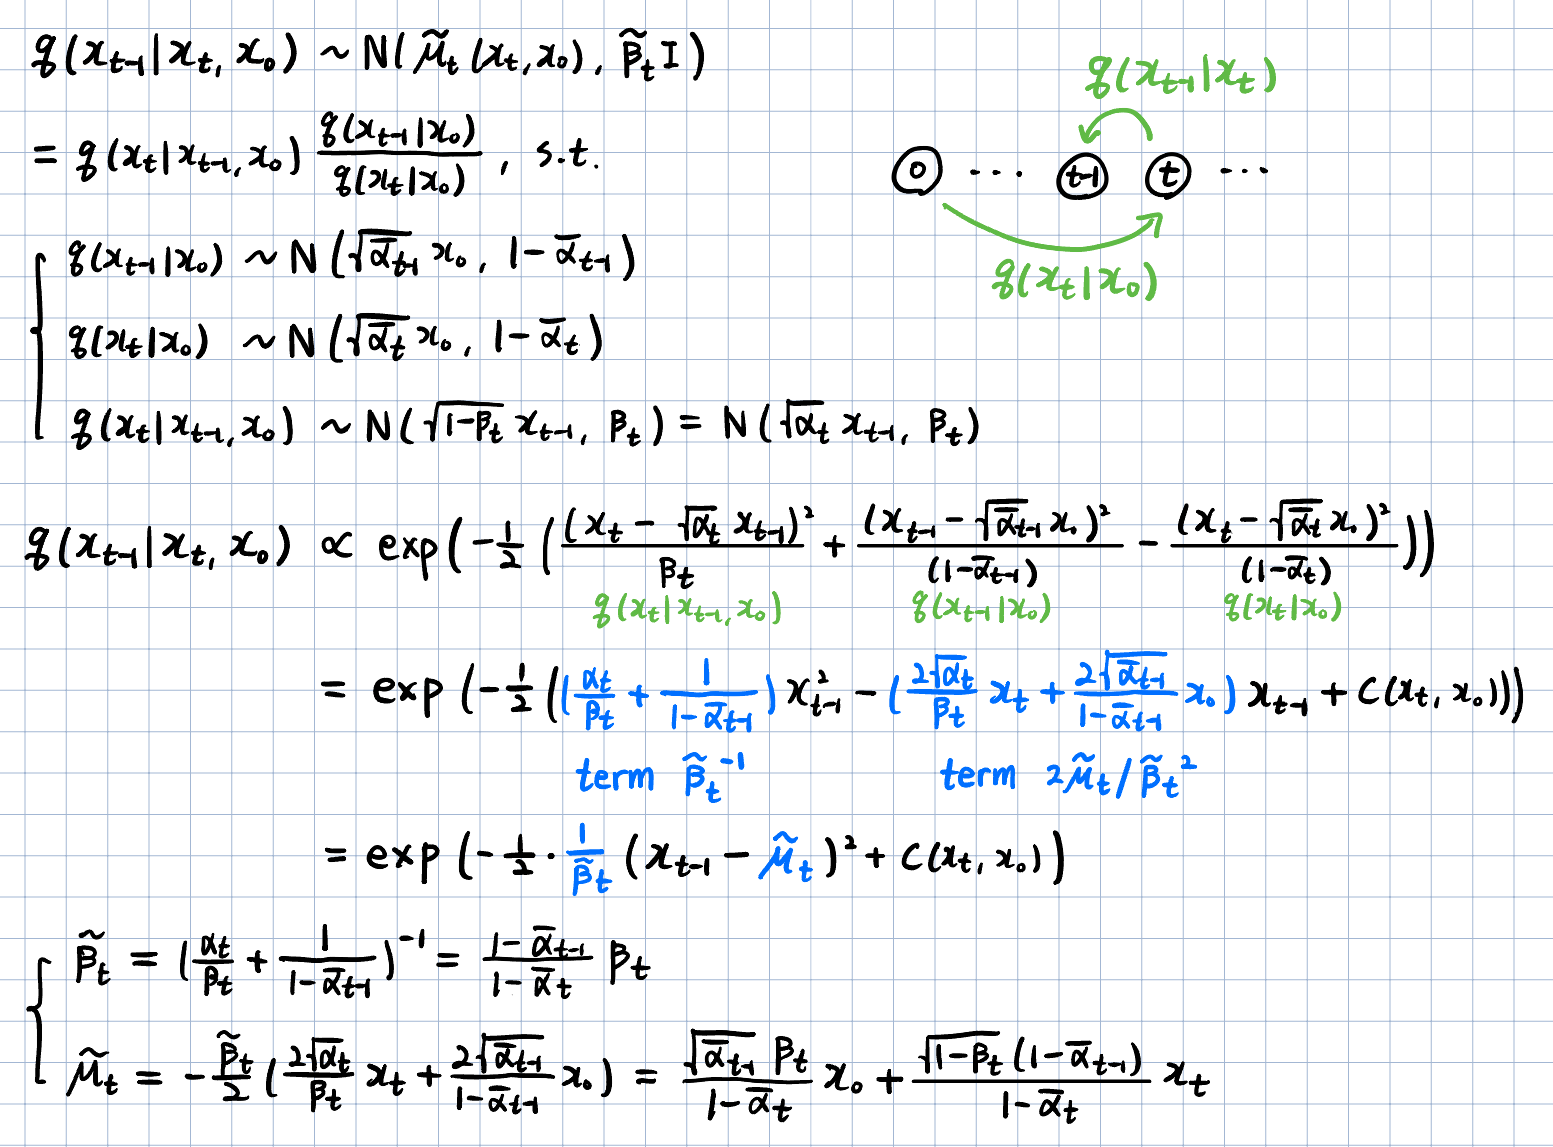 q(x_{t-1}|x_t, x_0) ~ N(μ̃_t(x_t, x_0), β̃_t I)
= q(x_t|x_{t-1}, x_0) \frac{q(x_{t-1}|x_0)}{q(x_t|x_0)}, s.t.
q(x_{t-1}|x_t)
0 ... t-1 t ...
q(x_t|x_0)
q(x_{t-1}|x_0) ~ N(\sqrt{ᾱ_{t-1}} x_0, 1-ᾱ_{t-1})
q(x_t|x_0) ~ N(\sqrt{ᾱ_t} x_0, 1-ᾱ_t)
q(x_t|x_{t-1}, x_0) ~ N(\sqrt{1-β_t} x_{t-1}, β_t) = N(\sqrt{α_t} x_{t-1}, β_t)
q(x_{t-1}|x_t, x_0) ∝ exp(-\frac{1}{2}(\frac{(x_t - \sqrt{α_t} x_{t-1})^2}{β_t} + \frac{(x_{t-1} - \sqrt{ᾱ_{t-1}} x_0)^2}{(1-ᾱ_{t-1})} - \frac{(x_t - \sqrt{ᾱ_t} x_0)^2}{(1-ᾱ_t)}))
q(x_t|x_{t-1}, x_0) q(x_{t-1}|x_0) q(x_t|x_0)
= exp(-\frac{1}{2}((\frac{α_t}{β_t} + \frac{1}{1-ᾱ_{t-1}}) x_{t-1}^2 - (\frac{2\sqrt{α_t}}{β_t} x_t + \frac{2\sqrt{ᾱ_{t-1}}}{1-ᾱ_{t-1}} x_0) x_{t-1} + C(x_t, x_0)))
term β̃_t^{-1} term 2μ̃_t/β̃_t^2
= exp(-\frac{1}{2} · \frac{1}{β̃_t} (x_{t-1} - μ̃_t)^2 + C(x_t, x_0))
β̃_t = (\frac{α_t}{β_t} + \frac{1}{1-ᾱ_{t-1}})^{-1} = \frac{1-ᾱ_{t-1}}{1-ᾱ_t} β_t
μ̃_t = -\frac{β̃_t}{2} (\frac{2\sqrt{α_t}}{β_t} x_t + \frac{2\sqrt{ᾱ_{t-1}}}{1-ᾱ_{t-1}} x_0) = \frac{\sqrt{ᾱ_{t-1}} β_t}{1-ᾱ_t} x_0 + \frac{\sqrt{1-β_t}(1-ᾱ_{t-1})}{1-ᾱ_t} x_t